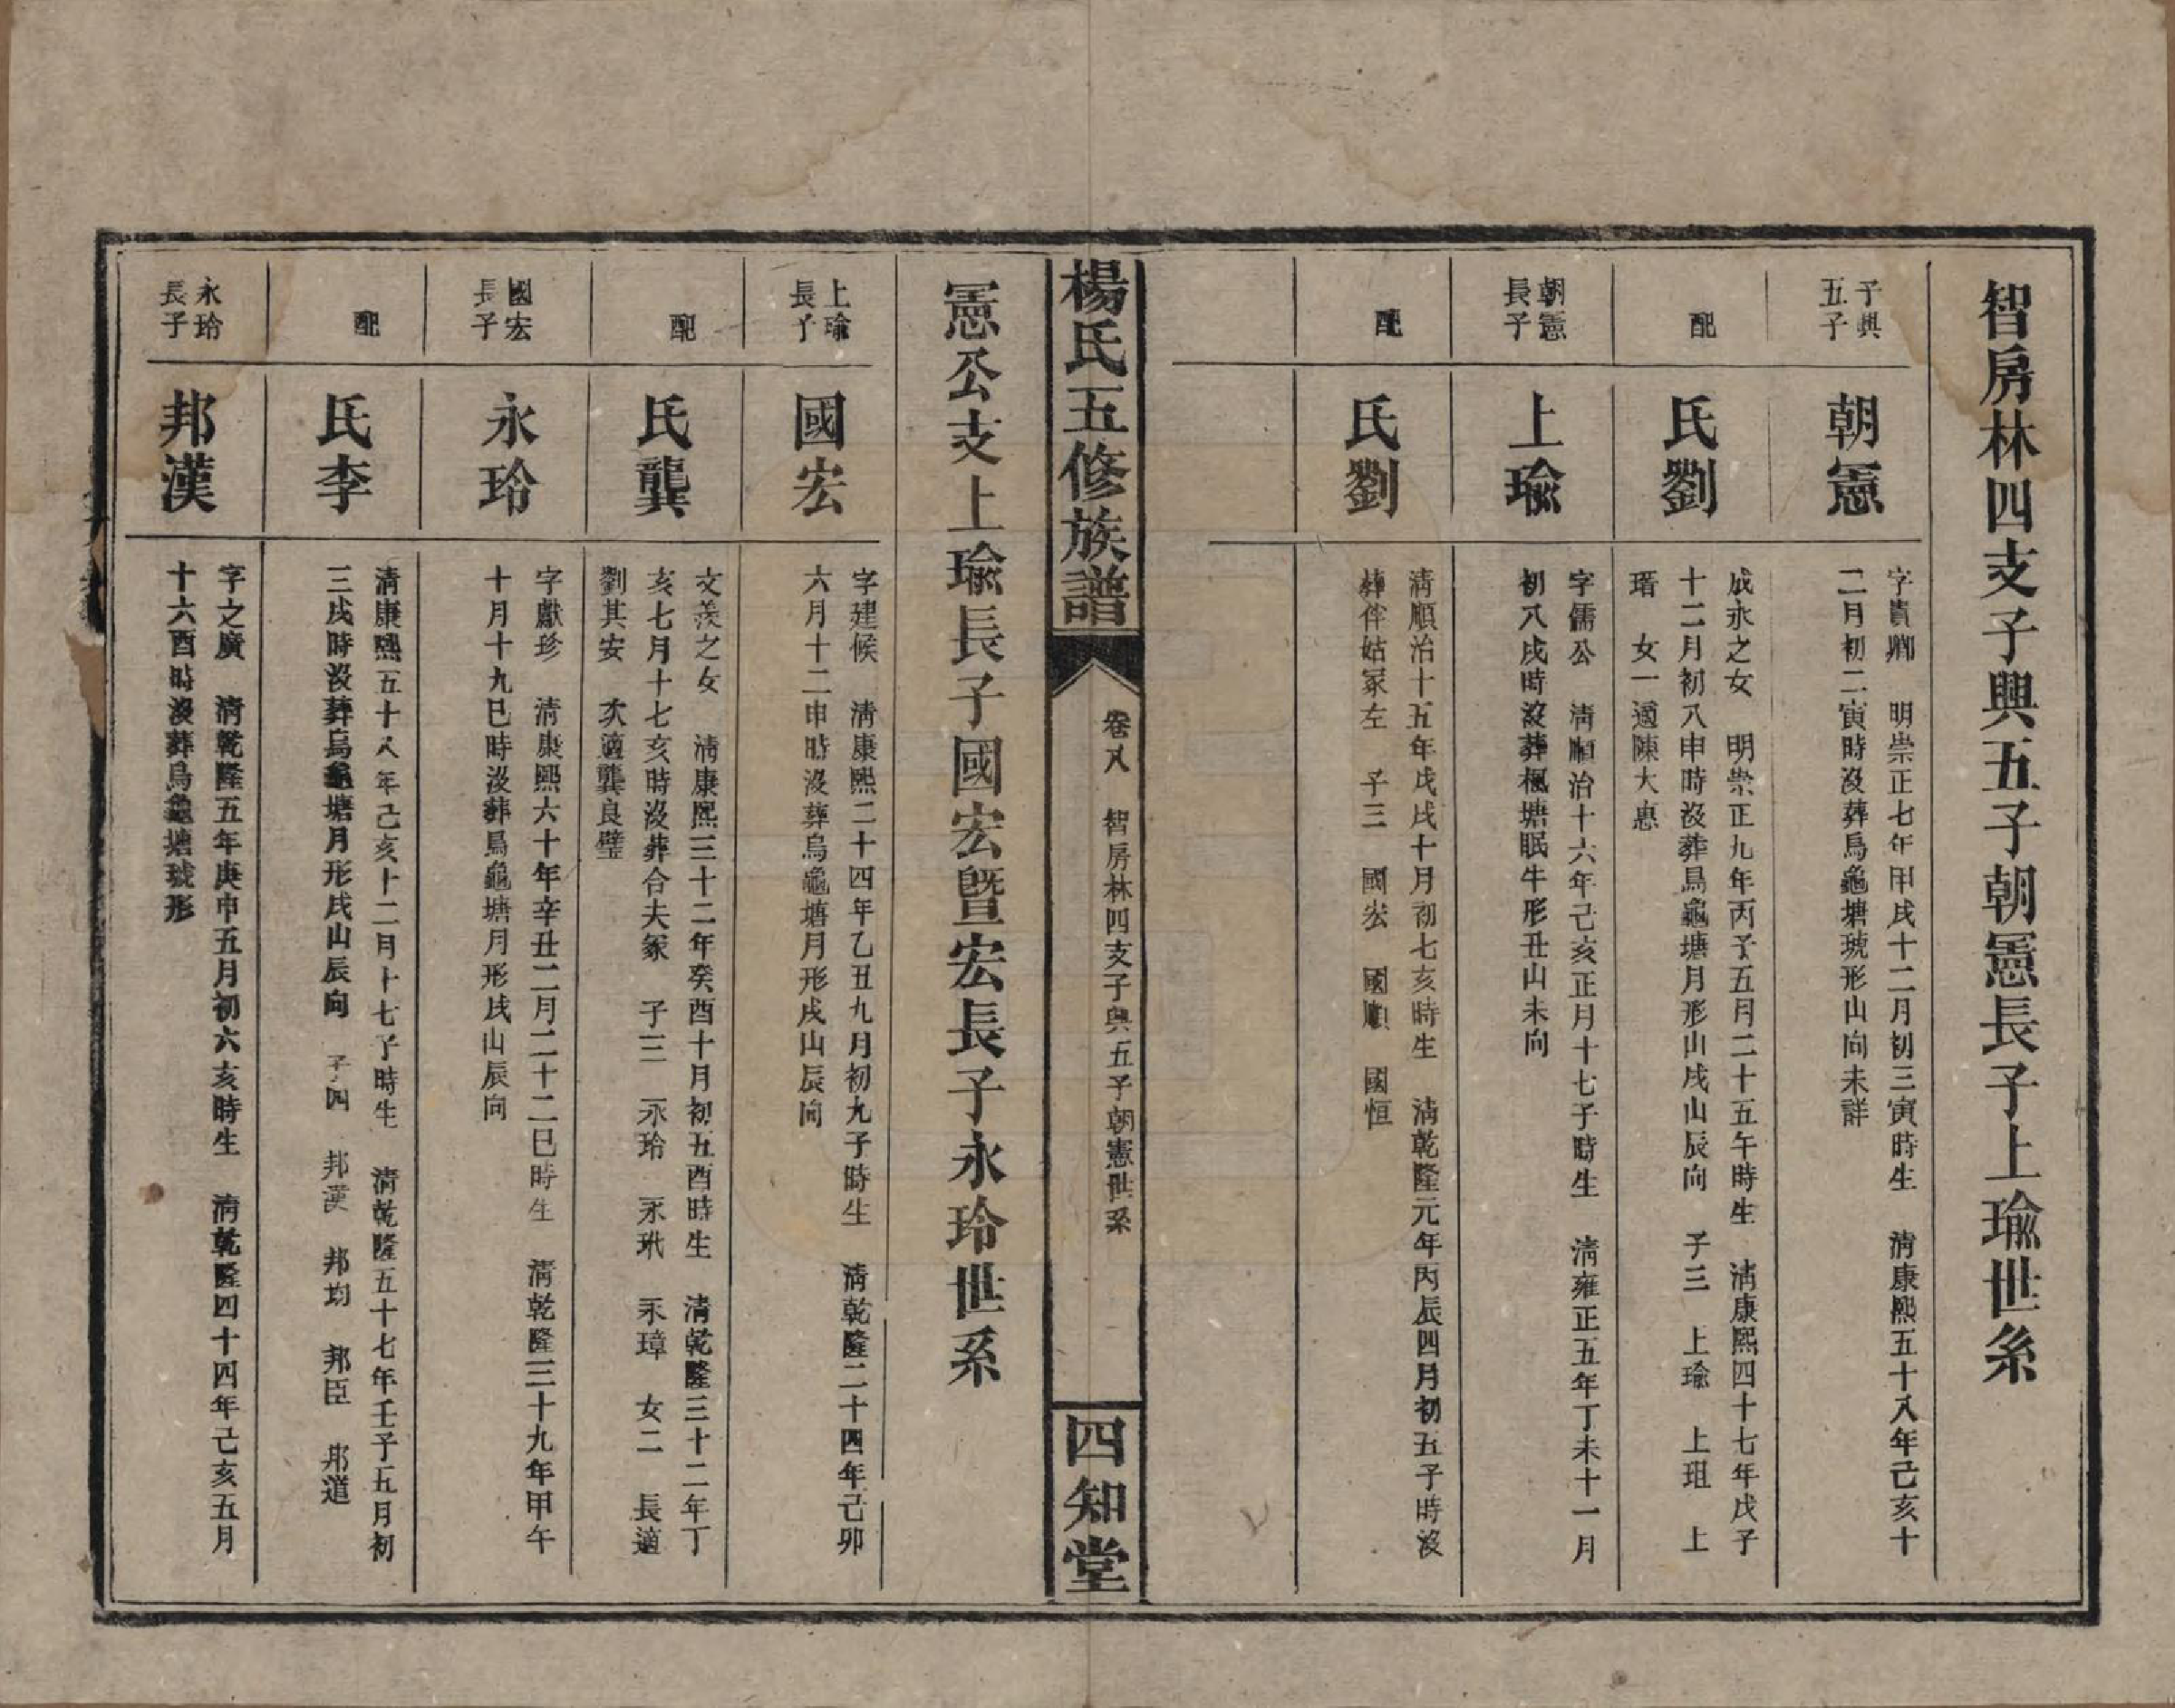 智房林四支子興五子朝憲長子上瑜世系
子興
五子
朝憲
字貴卿　明崇正七年甲戌十二月初三寅時生　清康熙五十八年己亥十
二月初二寅時沒葬烏龜塘琥形山向未詳
配
氏劉
成永之女　明崇正九年丙子五月二十五午時生　清康熙四十七年戊子
十二月初八申時沒葬烏龜塘月形山戌山辰向　子三　上瑜　上珇　上
瑨　女一適陳大惠
朝憲
長子
上瑜
字儒公　清順治十六年己亥正月十七子時生　清雍正五年丁未十一月
初八戌時沒葬楓塘眠牛形丑山未向
配
氏劉
清順治十五年戊戌十月初七亥時生　清乾隆元年丙辰四月初五子時沒
葬伴姑冢左　子三　國宏　國順　國恒
楊氏五修族譜
卷八　智房林四支子興五子朝憲世系
四知堂
憲公支上瑜長子國宏暨宏長子永玲世系
上瑜
長子
國宏
字建候　清康熙二十四年乙丑九月初九子時生　清乾隆二十四年己卯
六月十二申時沒葬烏龜塘月形戌山辰向
配
氏龔
文羨之女　清康熙三十二年癸酉十月初五酉時生　清乾隆三十二年丁
亥七月十七亥時沒葬合夫冢　子三　永玲　永玳　永璋　女二　長適
劉其安　次適龔良璧
國宏
長子
永玲
字獻珍　清康熙六十年辛丑二月二十二巳時生　清乾隆三十九年甲午
十月十九巳時沒葬烏龜塘月形戌山辰向
配
氏李
清康熙五十八年己亥十二月十七子時生　清乾隆五十七年壬子五月初
三戌時沒葬烏龜塘月形戌山辰向　子四　邦漢　邦均　邦臣　邦道
永玲
長子
邦漢
字之廣　清乾隆五年庚申五月初六亥時生　清乾隆四十四年己亥五月
十六酉時沒葬烏龜塘琥形